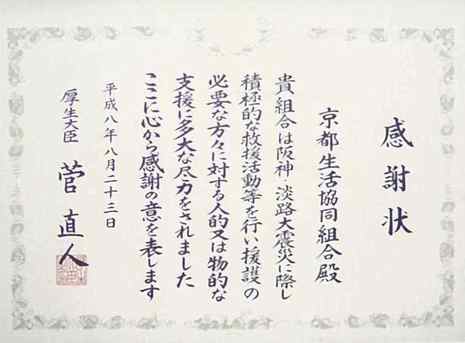 感謝状
京都生活協同組合殿
貴組合は阪神・淡路大震災に際し
積極的な救援活動等を行い援護の
必要な方々に対する人的又は物的な
支援に多大な尽力をされました
ここに心から感謝の意を表します
平成八年八月二十三日
厚生大臣 菅直人